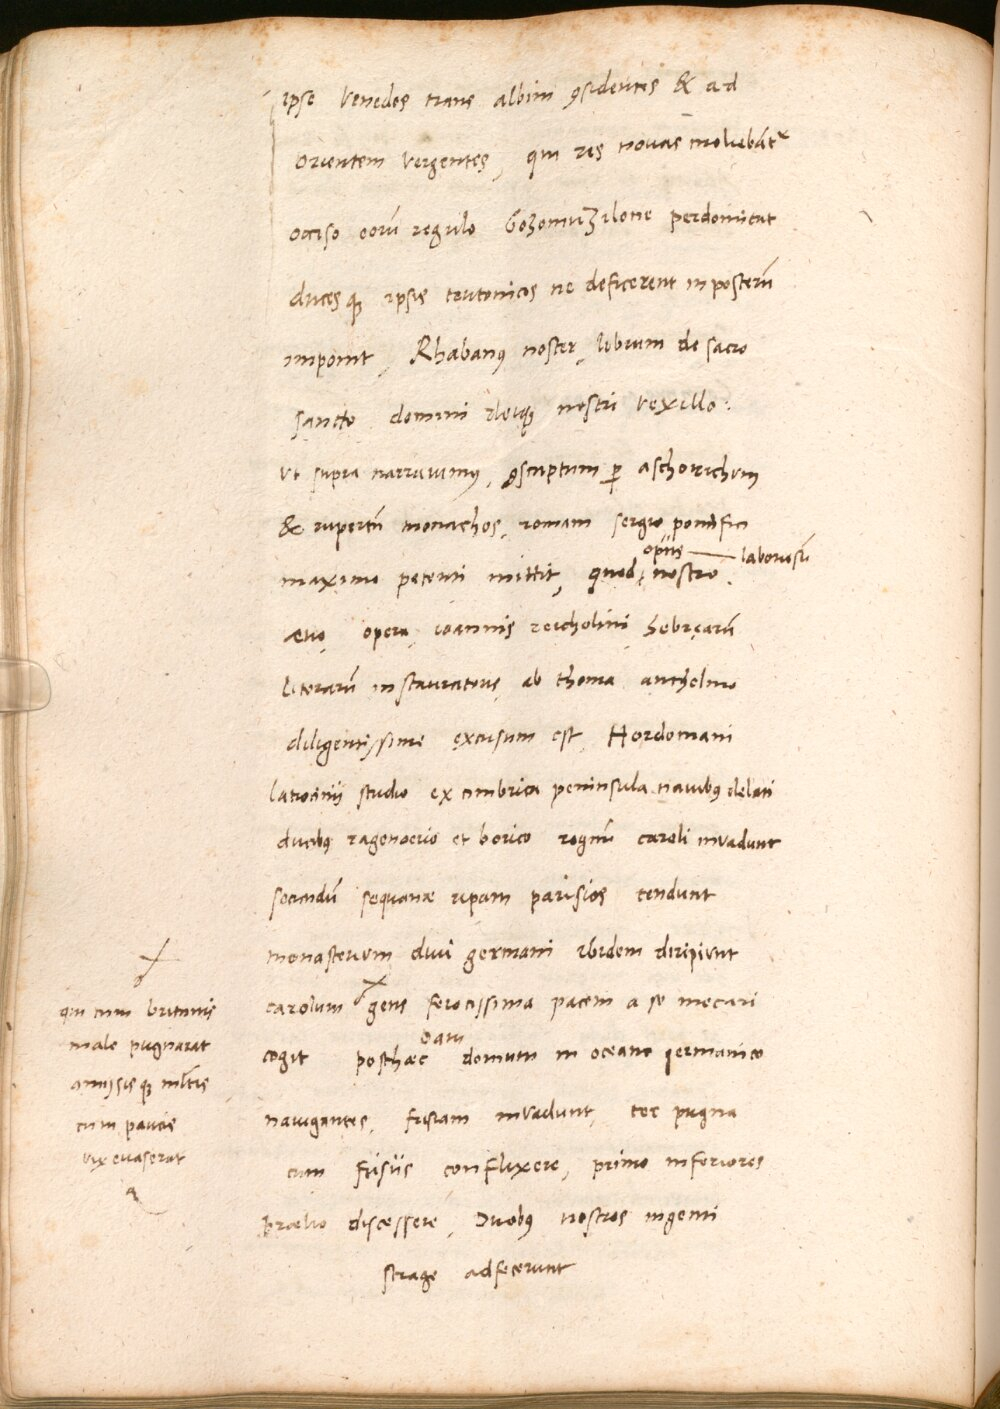 ipse Venedos trans albim ꝯsidentes & ad
orientem vergentes, qui res novas moliebāt̃
occiso eorū regulo Gozomuzilone perdomitat
ducesqꝫ ipsis teutonicos ne deficerent in posterū
imponit, Rhabanꝰ noster, librum de sacro
sancto domini deiqꝫ nostri vexillo.
vt supra narravimꝰ, ꝯscriptum ꝑ aschorichum
& rupertū monachos, romam sergio pontifici
maximo petenti mittit, quod nostro
opus laboriosū
ævo opera ioannis reicholini hebręarū
literarū instauratoris ab thoma anthelmo
diligentissime excusum est, Nordomani
latrocinij studio ex cimbrica peninsula navibꝰ delati
ducibꝰ ragenoerio et borico regnū caroli invadunt
secundū sequanæ ripam parisios tendunt
monasterium divi germani ibidem diripiunt
carolum gens ferocissima pacem a se mercari
cogit posthæc domum in oceano germanico
navigantes, frisiam invadunt, ter pugna
cum frisiis conflixere, primo inferiores
prælio discessere, Duobꝰ nostros ingenti
strage adfecerunt
qui cum britannis
male pugnarat
amissisqꝫ mĩtis
cum paucis
vix evaserat